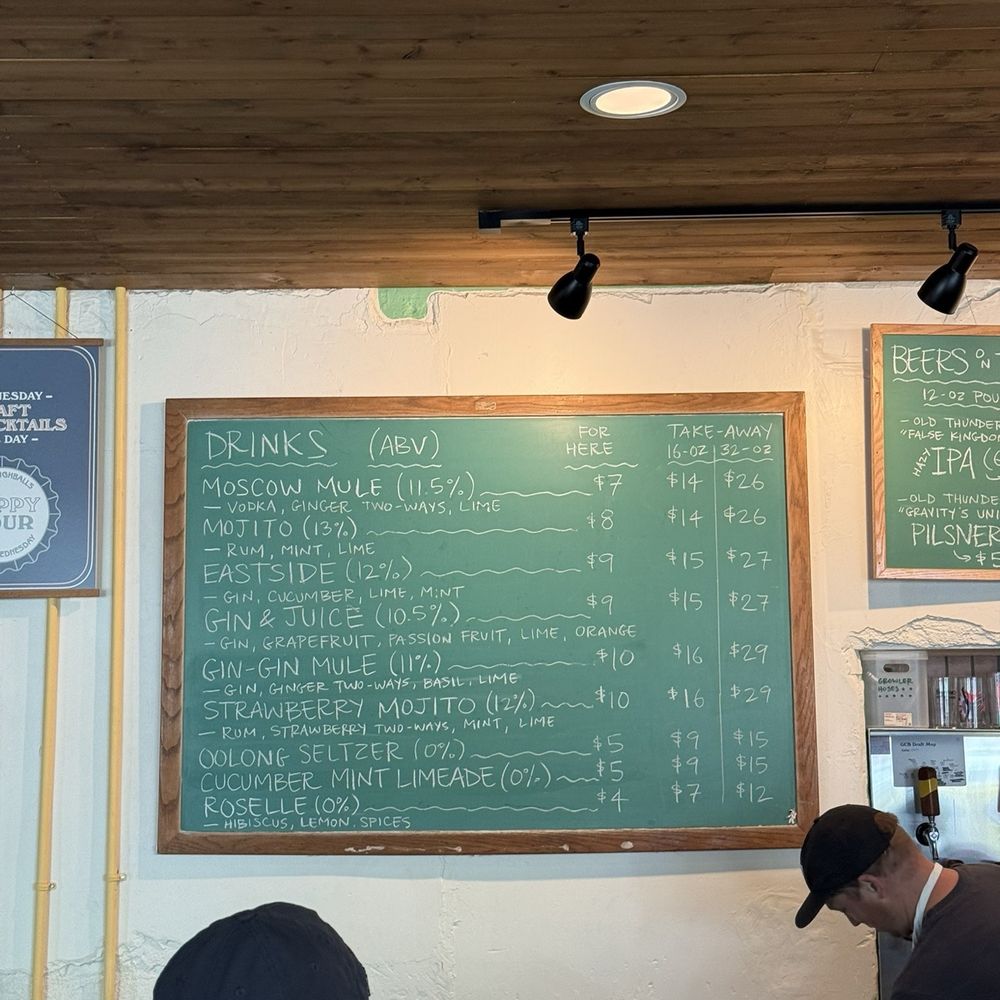 DRINKS (ABV) FOR HERE TAKE-AWAY
16-OZ 32-OZ
MOSCOW MULE (11.5%) $7 $14 $26
- VODKA, GINGER TWO-WAYS, LIME
MOJITO (13%) $8 $14 $26
- RUM, MINT, LIME
EASTSIDE (12%) $9 $15 $27
- GIN, CUCUMBER, LIME, MINT
GIN & JUICE (10.5%) $9 $15 $27
- GIN, GRAPEFRUIT, PASSION FRUIT, LIME, ORANGE
GIN-GIN MULE (11%) $10 $16 $29
- GIN, GINGER TWO-WAYS, BASIL, LIME
STRAWBERRY MOJITO (12%) $10 $16 $29
- RUM, STRAWBERRY TWO-WAYS, MINT, LIME
OOLONG SELTZER (0%) $5 $9 $15
CUCUMBER MINT LIMEADE (0%) $5 $9 $15
ROSELLE (0%) $4 $7 $12
- HIBISCUS, LEMON, SPICES
NESDAY -
AFT
CKTAILS
DAY -
PPY
OUR
BEERS ON
12-OZ POU
- OLD THUNDER
"FALSE KINGDO
HAZY IPA
- OLD THUNDE
"GRAVITY'S UNI
PILSNER
$5
GROWLER
HOSES
GCB Draft Map